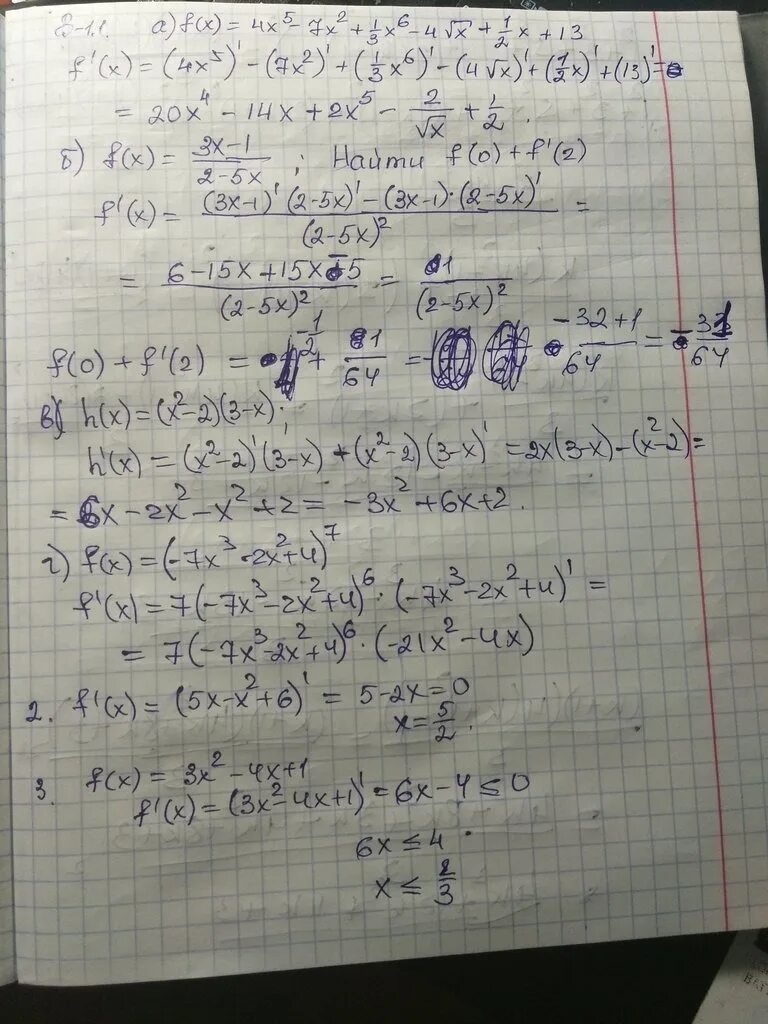 З-1.1. а) f(x) = 4x⁵ - 7x² + 1/3 x⁶ - 4√x + 1/2 x + 13
f'(x) = (4x⁵)' - (7x²)' + (1/3 x⁶)' - (4√x)' + (1/2 x)' + (13)' =
= 20x⁴ - 14x + 2x⁵ - 2/√x + 1/2.
б) f(x) = (3x-1)/(2-5x); Найти f(0) + f'(2)
f'(x) = ((3x-1)' (2-5x)' - (3x-1)·(2-5x)')/(2-5x)² =
= (6 - 15x + 15x - 5)/(2-5x)² = 1/(2-5x)²
f(0) + f'(2) = -1/2 + 1/64 = (-32+1)/64 = -31/64
в) h(x) = (x²-2)(3-x);
h'(x) = (x²-2)'(3-x) + (x²-2)(3-x)' = 2x(3-x) - (x²-2) =
= 6x - 2x² - x² + 2 = -3x² + 6x + 2.
г) f(x) = (-7x³ - 2x² + 4)⁷
f'(x) = 7(-7x³ - 2x² + 4)⁶ · (-7x³ - 2x² + 4)' =
= 7(-7x³ - 2x² + 4)⁶ · (-21x² - 4x)
2. f'(x) = (5x - x² + 6)' = 5 - 2x = 0
x = 5/2.
3. f(x) = 3x² - 4x + 1
f'(x) = (3x² - 4x + 1)' = 6x - 4 ≤ 0
6x ≤ 4
x ≤ 2/3